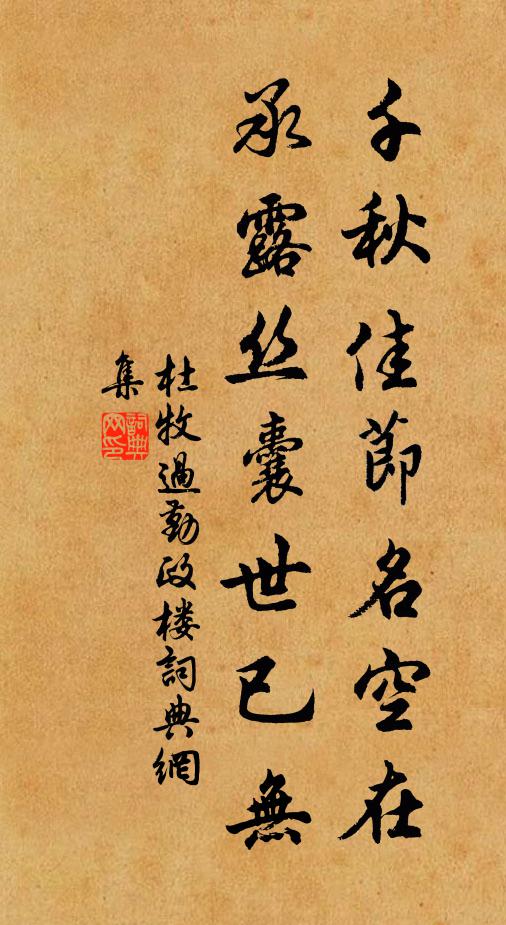 千秋佳節名空在
承露丝囊世已無
杜牧過勤政楼詞典網
集
詞典网印